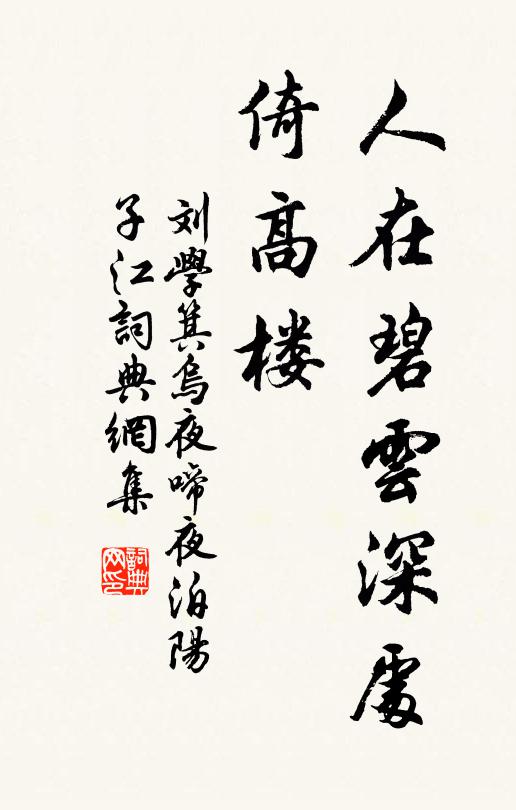 人在碧雲深處
倚高楼
刘學箕烏夜啼夜泊陽
子江詞典網集
詞典网印